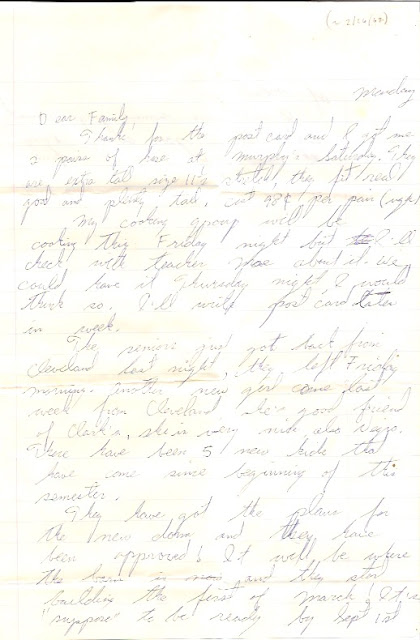 (~ 2/26/63)
Monday
Dear Family,
Thanks for the post card and I got me
2 pairs of hose at Murphy's Saturday. They
are extra tall size 11½ they fit real
good and plenty tall, cost 98¢ per pair (right
My cooking group will be
cooking this Friday night but I'll
check with teacher more about it. We
could have it Thursday night, I would
think so. I'll write post card later
in week.
The seniors just got back from
Cleveland last night, they left Friday
morning. Another new girl came last
week from Cleveland she's good friend
of she is very nice also
There have been 5 new kids that
have come since beginning of this
semester.
They have got the plans for
the new dorm and they have
been approved! It will be where
the barn is now and they start
building the first of march! It is
"suppose" to be ready by Sept 1st